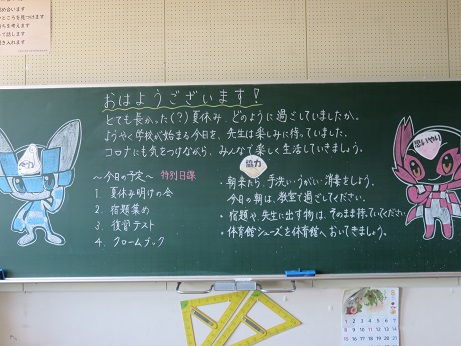 おはようございます!
とても長かった(?)夏休み、どのように過ごしていましたか。
ようやく学校が始まる今日を、先生は楽しみに待っていました。
コロナにも気をつけながら、みんなで楽しく生活していきましょう。
協力
思いやり
〜今日の予定〜 特別日課
1. 夏休み明けの会
2. 宿題集め
3. 復習テスト
4. クロームブック
・朝来たら、手洗い・うがい・消毒をしよう。
今日の朝は、教室で過ごしてください。
・宿題や先生に出す物は、そのまま持っていてください。
・体育館シューズを体育館へおいてきましょう。